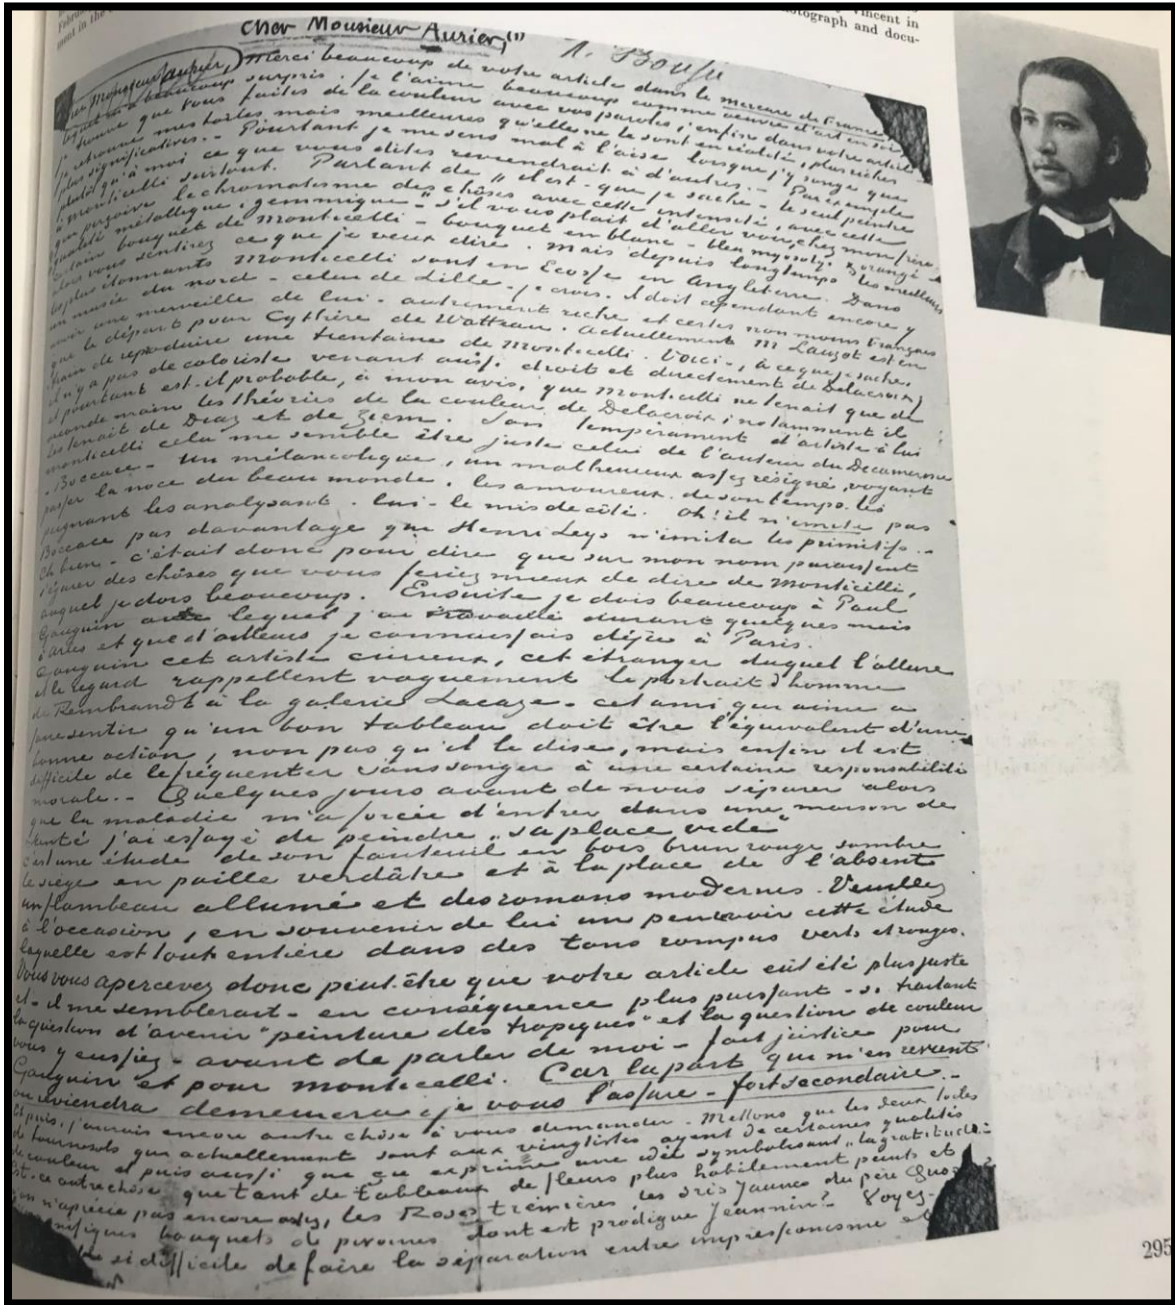 Februa
ment in the
Vincent in
otograph and docu-
Cher Monsieur Aurier, (1)
Cher Monsieur Aurier, Merci beaucoup de votre article dans le mercure de France,
lequel m'a beaucoup surpris. Je l'aime beaucoup comme oeuvre d'art en soi
je trouve que vous faites de la couleur avec vos paroles; enfin dans votre article
je retrouve mes toiles mais meilleures qu'elles ne le sont en réalité, plus riches
plus significatives. - Pourtant je me sens mal à l'aise lorsque j'y songe que
plutôt qu'à moi ce que vous dites reviendrait à d'autres. - Par exemple
à monticelli surtout. Partant de „il est - que je sache - le seul peintre
qui perçoive le chromatisme des chôses avec cette intensité, avec cette
qualité métallique, gemmique - " s'il vous plait d'aller voir, chez mon frère
certain bouquet de Monticelli - bouquet en blanc - bleu myosotys & orangé -
alors vous sentirez ce que je veux dire. Mais depuis longtemps les meilleurs
les plus étonnants Monticelli sont en Ecosse en Angleterre. Dans
un musée du nord - celui de Lille je crois, il doit cependant encore y
avoir une merveille de lui. autrement riche et certes non moins Français
que le départ pour Cythère de Watteau. actuellement M Lauzet est en
train de reproduire une trentaine de Monticelli. Voici, à ce que je sache,
il n'y a pas de coloriste venant aussi droit et directement de Delacroix;
et pourtant est-il probable, à mon avis, que Monticelli ne tenait que de
seconde main les théories de la couleur de Delacroix; notamment il
les tenait de Diaz et de Ziem. Son tempérament d'artiste à lui
monticelli cela me semble être juste celui de l'auteur du Decamerone
- Boccace - Un mélancolique, un malheureux assez résigné, voyant
passer la noce du beau monde, les amoureux de son temps, les
peignant les analysant, lui - le mis de côté. Oh! il n'imite pas
Boccace pas davantage que Henri Leys n'imita les primitifs. -
Eh bien - c'était donc pour dire que sur mon nom paraissent
s'égarer des chôses que vous feriez mieux de dire de Monticelli,
auquel je dois beaucoup. Ensuite je dois beaucoup à Paul
Gauguin avec lequel j'ai travaillé durant quelques mois
à arles et que d'ailleurs je connaissais déjà à Paris.
Gauguin cet artiste curieux, cet étranger duquel l'allure
et le regard rappellent vaguement le portrait d'homme
de Rembrandt à la galerie Lacaze - cet ami qui aime à
faire sentir qu'un bon tableau doit être l'équivalent d'une
bonne action, non pas qu'il le dise, mais enfin il est
difficile de le fréquenter sans songer à une certaine responsabilité
morale. - Quelques jours avant de nous séparer alors
que la maladie m'a forcée d'entrer dans une maison de
santé j'ai essayé de peindre „sa place vide"
c'est une étude de son fauteuil en bois brun rouge sombre
le siège en paille verdâtre et à la place de l'absent
un flambeau allumé et des romans modernes. Veuillez
à l'occasion, en souvenir de lui un peu revoir cette étude
laquelle est tout entière dans des tons rompus verts et rouges.
Vous vous apercevez donc peut-être que votre article eût été plus juste
et - il me semblerait - en conséquence plus puissant - si traitant
la question d'avenir "peinture des tropiques" et la question de couleur
vous y eussiez - avant de parler de moi - fait justice pour
Gauguin et pour monticelli. Car la part qui m'en revient
ou reviendra demeurera, je vous l'assure - fort secondaire. -
Et puis, j'aurais encore autre chôse à vous demander. Mettons que les deux toiles
de tournesols qui actuellement sont aux vingtistes ayent de certaines qualités
de couleur et puis aussi que ça exprime une idée symbolisant „la gratitude".
Est-ce autre chôse que tant de tableaux de fleurs plus habilement peints et
qu'on n'apprécie pas encore assez, les Roses trémières, les Iris jaunes du père Quost?
les magnifiques bouquets de pivoines dont est prodigue Jeannin? Voyez-
si difficile de faire la séparation entre impressionisme et
295